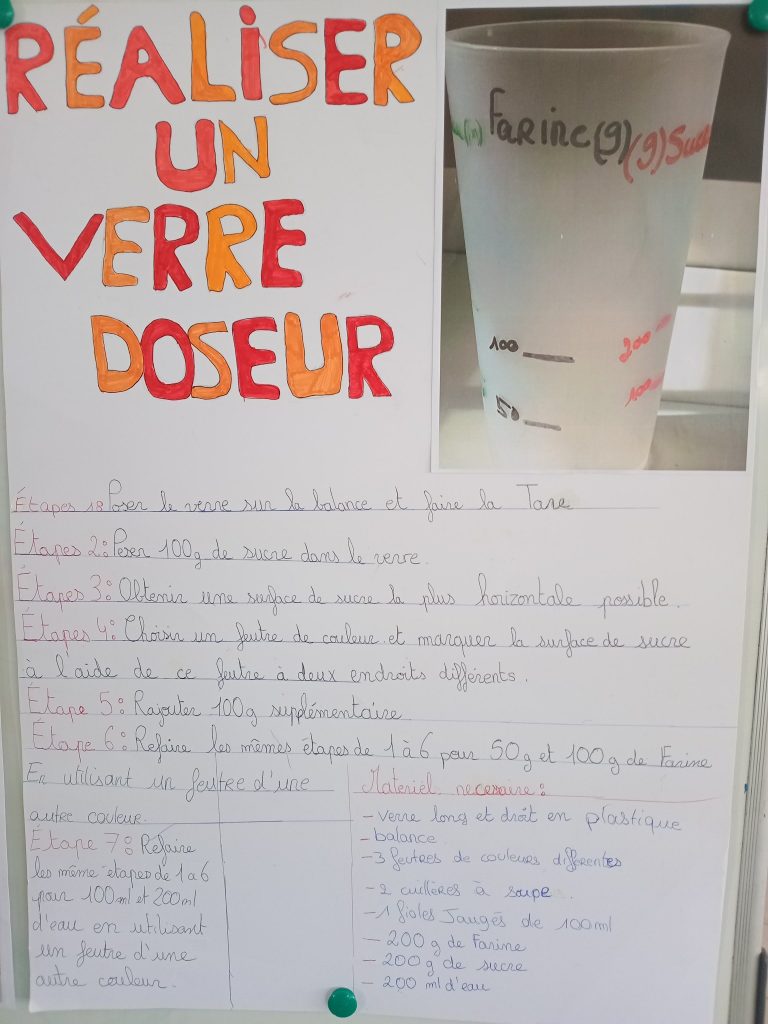 RÉALISER
UN
VERRE
DOSEUR
Farine(g) (g)Suc
100
200
50
100
Étapes 1: Poser le verre sur la balance et faire la Tare
Étapes 2: Peser 100g de sucre dans le verre.
Étapes 3: Obtenir une surface de sucre la plus horizontale possible.
Étapes 4: Choisir un feutre de couleur et marquer la surface de sucre
à l'aide de ce feutre à deux endroits différents.
Étape 5: Rajouter 100g supplémentaire
Étape 6: Refaire les mêmes étapes de 1 à 6 pour 50g et 100g de Farine
En utilisant un feutre d'une
autre couleur.
Étape 7: Refaire
les même étapes de 1 à 6
pour 100ml et 200ml
d'eau en utilisant
un feutre d'une
autre couleur.
Materiel necesaire:
- verre long et droit en plastique
- balance
- 3 feutres de couleurs differentes
- 2 cuillères à soupe.
- 1 fioles Jaugés de 100ml
- 200g de Farine
- 200g de sucre
- 200 ml d'eau